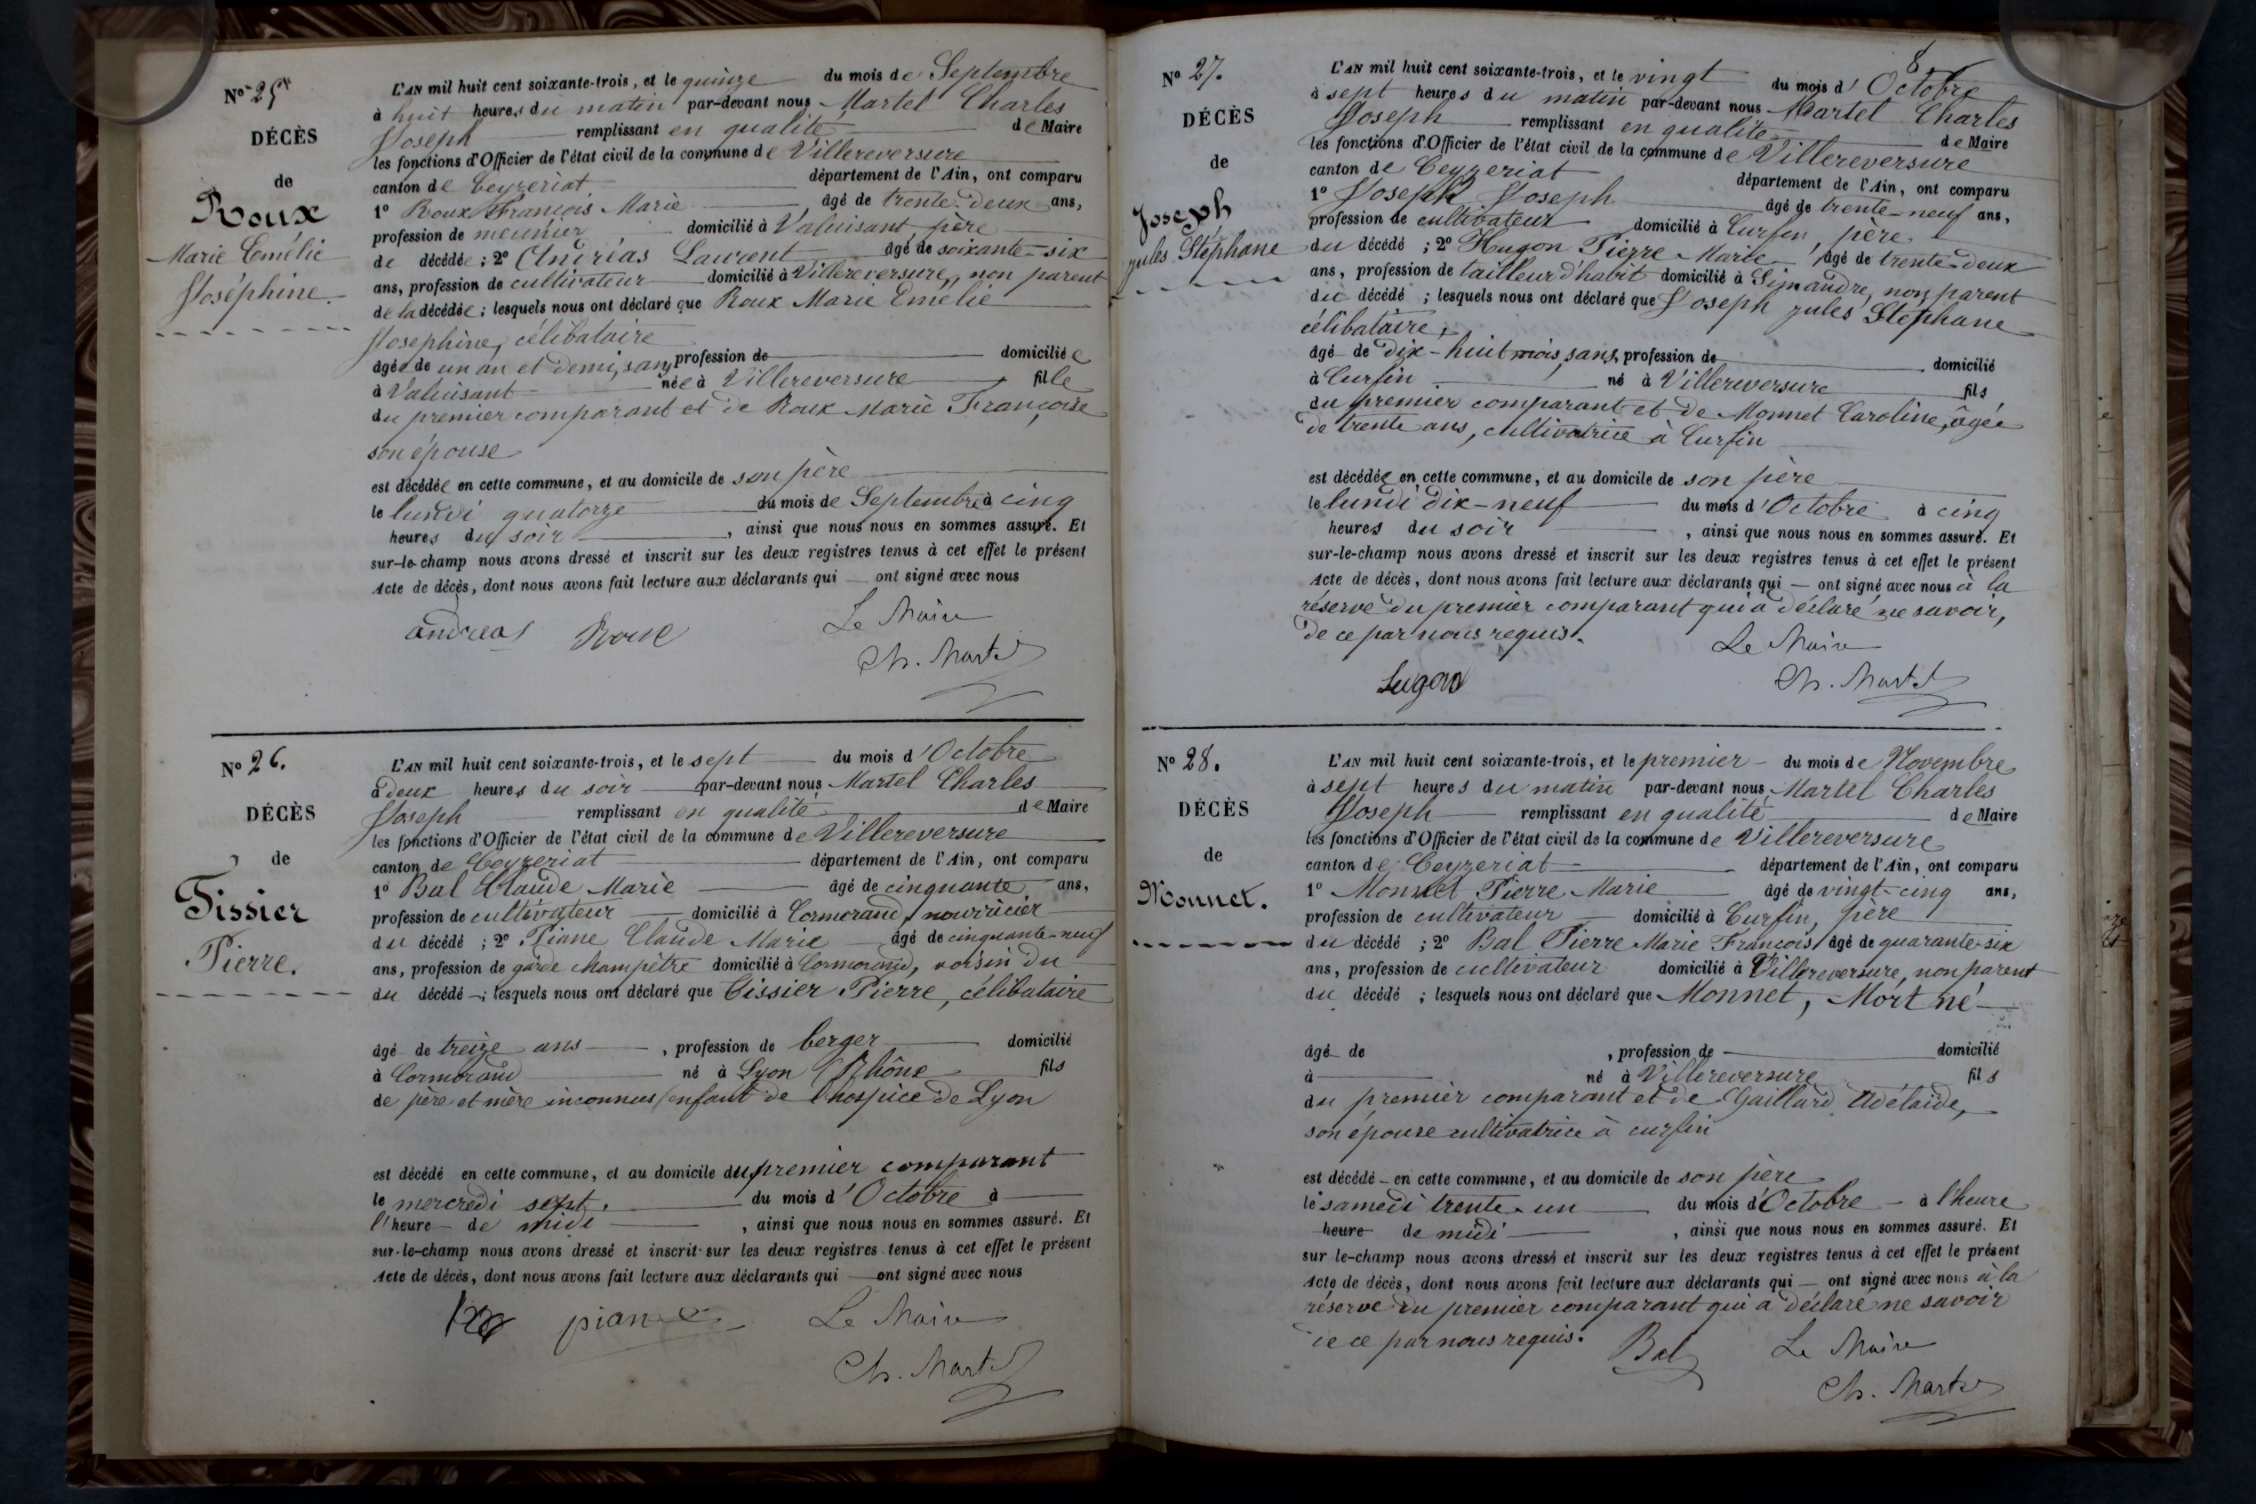 No 25
DÉCÈS
de
Roux
Marie Emélie
Joséphine.
L'AN mil huit cent soixante-trois, et le quinze du mois de Septembre
à huit heures du matin par-devant nous Martel Charles
Joseph remplissant en qualité de Maire
les fonctions d'Officier de l'état civil de la commune de Villereversure
canton de Ceyzeriat département de l'Ain, ont comparu
1º Roux François Marie âgé de trente-deux ans,
profession de meunier domicilié à Valuisant, père
de décédée ; 2º Andréas Laurent âgé de soixante-six
ans, profession de cultivateur domicilié à Villereversure, non parent
de la décédée ; lesquels nous ont déclaré que Roux Marie Emelie
Josephine, célibataire
âgée de un an et demi, sans profession de domiciliée
à Valuisant née à Villereversure fille
du premier comparant et de Roux Marie Françoise
son épouse
est décédée en cette commune, et au domicile de son père
le lundi quatorze du mois de Septembre à cinq
heures du soir , ainsi que nous nous en sommes assuré. Et
sur-le-champ nous avons dressé et inscrit sur les deux registres tenus à cet effet le présent
Acte de décès, dont nous avons fait lecture aux déclarants qui ont signé avec nous
andreas Roux Le Maire
Ch. Martel
No 26.
DÉCÈS
de
Tissier
Pierre.
L'AN mil huit cent soixante-trois, et le sept du mois d'Octobre
à deux heures du soir par-devant nous Martel Charles
Joseph remplissant en qualité de Maire
les fonctions d'Officier de l'état civil de la commune de Villereversure
canton de Ceyzeriat département de l'Ain, ont comparu
1º Bal Claude Marie âgé de cinquante ans,
profession de cultivateur domicilié à Cormorand, nourricier
du décédé ; 2º Piane Claude Marie âgé de cinquante-neuf
ans, profession de garde champêtre domicilié à Cormorand, voisin du
du décédé ; lesquels nous ont déclaré que Tissier Pierre, célibataire
âgé de treize ans , profession de berger domicilié
à Cormorand né à Lyon (Rhône fils
de père et mère inconnus (enfant de l'hospice de Lyon
est décédé en cette commune, et au domicile du premier comparant
le mercredi sept. du mois d'Octobre à
l'heure de midi , ainsi que nous nous en sommes assuré. Et
sur-le-champ nous avons dressé et inscrit sur les deux registres tenus à cet effet le présent
Acte de décès, dont nous avons fait lecture aux déclarants qui ont signé avec nous
piane Le Maire
Ch. Martel
8
No 27.
DÉCÈS
de
Joseph
jules Stéphane
L'AN mil huit cent soixante-trois, et le vingt du mois d'Octobre
à sept heures du matin par-devant nous Martel Charles
Joseph remplissant en qualité de Maire
les fonctions d'Officier de l'état civil de la commune de Villereversure
canton de Ceyzeriat département de l'Ain, ont comparu
1º Joseph Joseph âgé de trente-neuf ans,
profession de cultivateur domicilié à Curfin, père
du décédé ; 2º Hugon Pierre Marie âgé de trente-deux
ans, profession de tailleur d'habit domicilié à Simandre, non parent
du décédé ; lesquels nous ont déclaré que Joseph jules Stéphane
célibataire,
âgé de dix-huit mois, sans profession de domicilié
à Curfin né à Villereversure fils
du premier comparant et de Monnet Caroline, âgée
de trente ans, cultivatrice à Curfin
est décédée en cette commune, et au domicile de son père
le lundi dix-neuf du mois d'Octobre à cinq
heures du soir , ainsi que nous nous en sommes assuré. Et
sur-le-champ nous avons dressé et inscrit sur les deux registres tenus à cet effet le présent
Acte de décès, dont nous avons fait lecture aux déclarants qui ont signé avec nous à la
réserve du premier comparant qui a déclaré ne savoir,
de ce par nous requis. Le Maire
Ch. Martel
No 28.
DÉCÈS
de
Monnet.
L'AN mil huit cent soixante-trois, et le premier du mois de Novembre
à sept heures du matin par-devant nous Martel Charles
Joseph remplissant en qualité de Maire
les fonctions d'Officier de l'état civil de la commune de Villereversure
canton de Ceyzeriat département de l'Ain, ont comparu
1º Monnet Pierre Marie âgé de vingt-cinq ans,
profession de cultivateur domicilié à Curfin, père
du décédé ; 2º Bal Pierre Marie François âgé de quarante-six
ans, profession de cultivateur domicilié à Villereversure, non parent
du décédé ; lesquels nous ont déclaré que Monnet, Mort né
âgé de , profession de domicilié
à né à Villereversure fils
du premier comparant et de Gaillard Adélaide,
son épouse cultivatrice à curfin
est décédé en cette commune, et au domicile de son père
le samedi trente-un du mois d'Octobre à l'heure
heure de midi , ainsi que nous nous en sommes assuré. Et
sur le-champ nous avons dressé et inscrit sur les deux registres tenus à cet effet le présent
Acte de décès, dont nous avons fait lecture aux déclarants qui ont signé avec nous à la
réserve du premier comparant qui a déclaré ne savoir
de ce par nous requis. Bal Le Maire
Ch. Martel